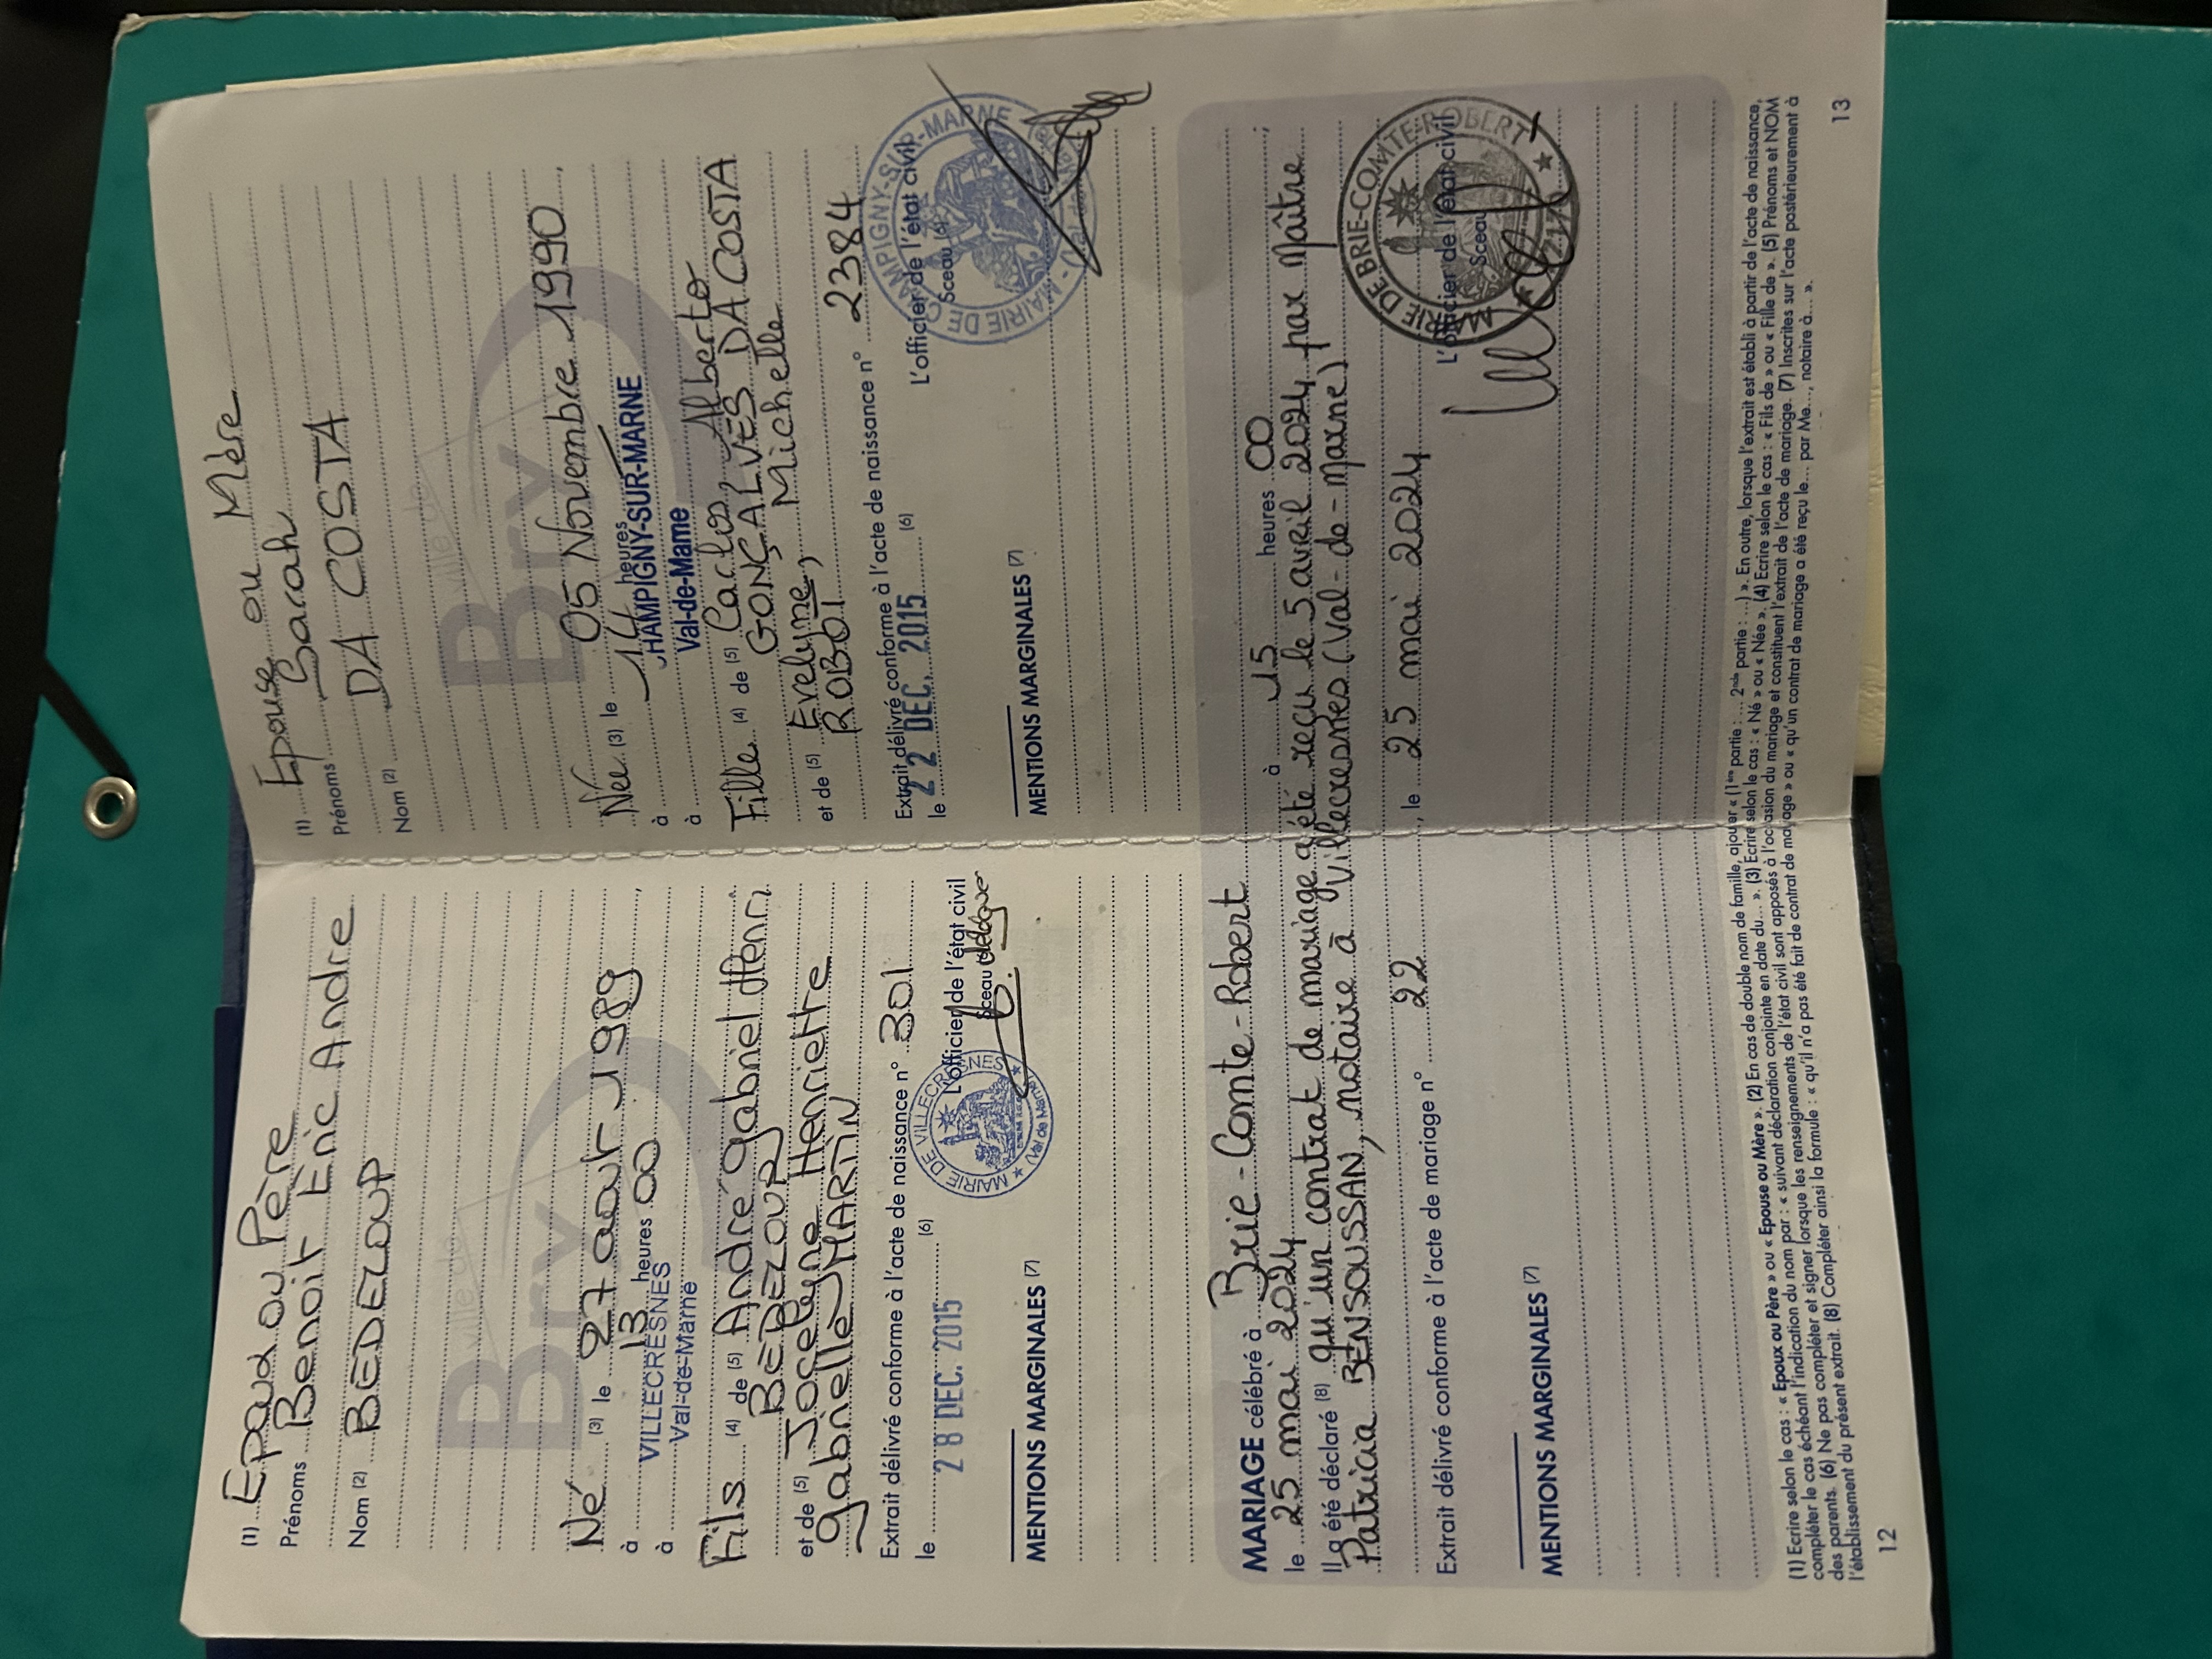 (1) Epoux ou Père
Prénoms Benoit Eric Andre
Nom (2) BEDELOUP
Ville de
Bry
Né (3) le 27 août 1989
à 13 heures 00
à VILLECRESNES
Val-de-Marne
Fils (4) de (5) André gabriel Henri
BEDELOUP
et de (5) Jocelyne Henriette
gabrielle MARTIN
Extrait délivré conforme à l'acte de naissance n° 301
le 28 DEC. 2015 (6)
L'officier de l'état civil
Sceau
MAIRIE DE VILLECRESNES
(Val de Marne)
MENTIONS MARGINALES (7)
(1) Epouse ou Mère
Prénoms Sarah
Nom (2) DA COSTA
Ville de
Bry
Née (3) le 05 Novembre 1990,
à 14 heures
à CHAMPIGNY-SUR-MARNE
Val-de-Marne
Fille (4) de (5) Carlos, Alberto
GONÇALVES DA COSTA
et de (5) Evelyne, Michelle
ROBOI
Extrait délivré conforme à l'acte de naissance n° 2384
le 22 DEC. 2015 (6)
L'officier de l'état civil
Sceau (6)
MAIRIE DE CHAMPIGNY-SUR-MARNE
MENTIONS MARGINALES (7)
MARIAGE célébré à Brie-Comte-Robert ;
le 25 mai 2024 à 15 heures 00
Il a été déclaré (8) qu'un contrat de mariage a été reçu le 5 avril 2024 par Maître
Patricia BENSOUSSAN, notaire à Villecresnes (Val-de-Marne)
Extrait délivré conforme à l'acte de mariage n° 22, le 25 mai 2024
L'officier de l'état civil
Sceau
MAIRIE DE BRIE-COMTE-ROBERT
MENTIONS MARGINALES (7)
(1) Ecrire selon le cas : « Epoux ou Père » ou « Epouse ou Mère ». (2) En cas de double nom de famille, ajouer « (1ère partie : ... 2nde partie : ...) ». En outre, lorsque l'extrait est établi à partir de l'acte de naissance,
compléter le cas échéant l'indication du nom par : « suivant déclaration conjointe en date du... ». (3) Ecrire selon le cas : « Né » ou « Née ». (4) Ecrire selon le cas : « Fils de » ou « Fille de ». (5) Prénoms et NOM
des parents. (6) Ne pas compléter et signer lorsque les renseignements de l'état civil sont apposés à l'occasion du mariage et constituent l'extrait de l'acte de mariage. (7) Inscrites sur l'acte postérieurement à
l'établissement du présent extrait. (8) Compléter ainsi la formule : « qu'il n'a pas été fait de contrat de mariage » ou « qu'un contrat de mariage a été reçu le... par Me..., notaire à... ».
12
13